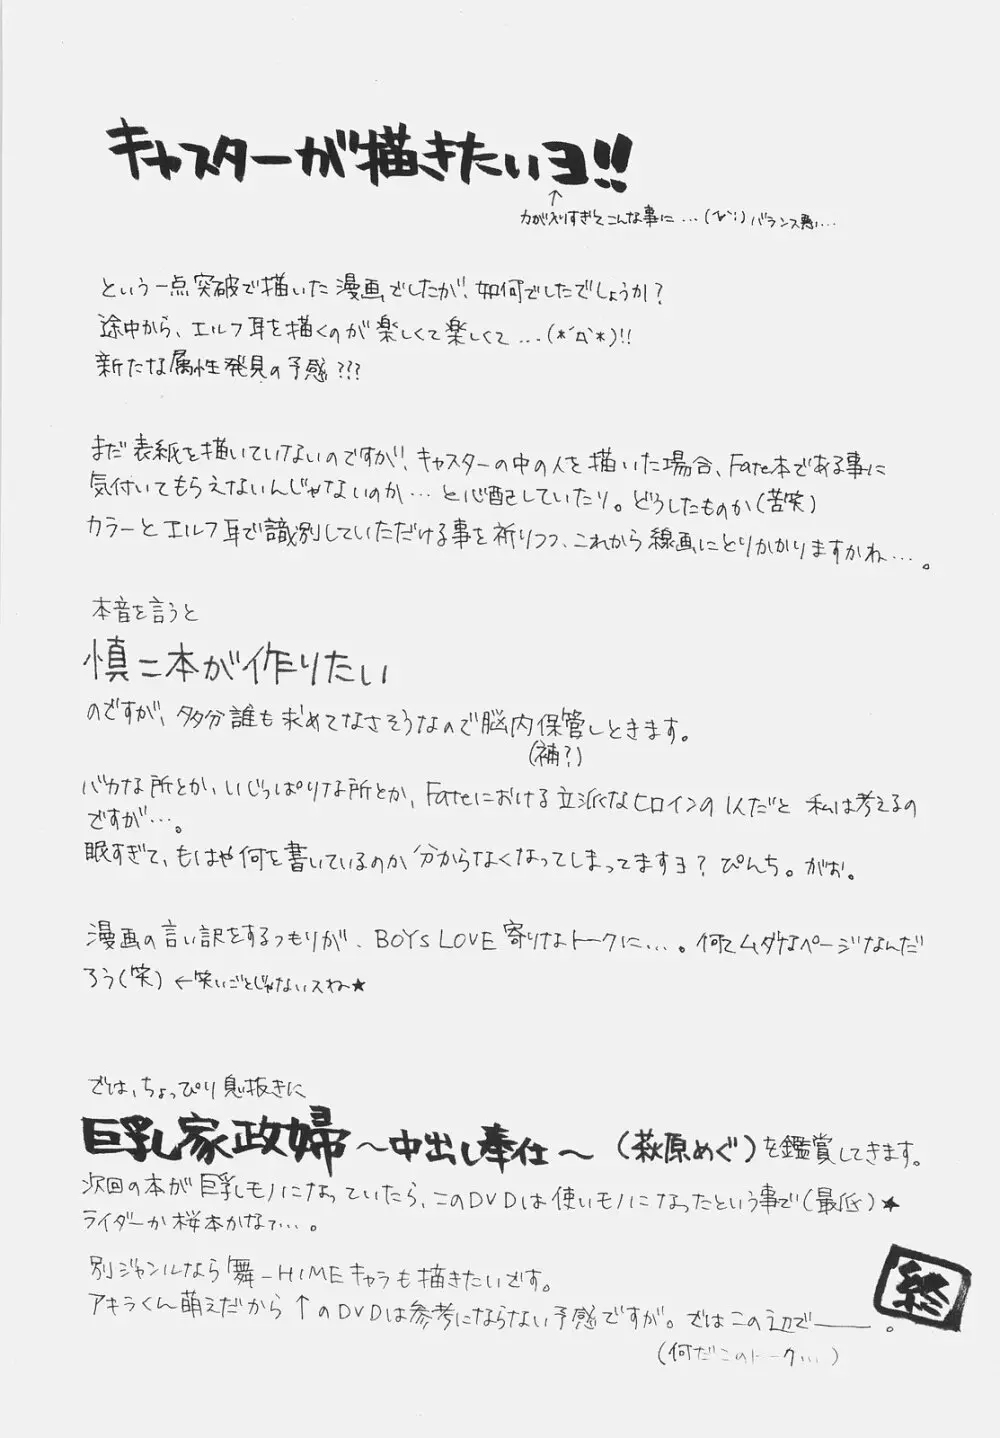 キャスターが描きたいヨ!!
↑
力が入りすぎてこんな事に…(;´Д`)バランス悪い…
という一点突破で描いた漫画でしたが、如何でしたでしょうか?
途中から、エルフ耳を描くのが楽しくて楽しくて…(*´Д`*)!!
新たな属性発見の予感???
まだ表紙を描いていないのですが、キャスターの中の人を描いた場合、Fate本である事に
気付いてもらえないんじゃないのか…と心配していたり。どうしたものか(苦笑)
カラーとエルフ耳で識別していただける事を祈りつつ、これから線画にとりかかりますかね…。
本音を言うと
慎二本が作りたい
のですが、多分誰も求めてなさそうなので脳内保管しときます。
(補?)
バカな所とか、いじっぱりな所とか、Fateにおける立派なヒロインの1人だと私は考えるの
ですが…。
眠すぎて、もはや何を書いているのか分からなくなってしまってますヨ?ぴんち。がお。
漫画の言い訳をするつもりが、BOYs LOVE寄りなトークに…。何てムダなページなんだ
ろう(笑)←笑いごとじゃないスね★
では、ちょっぴり息抜きに
巨乳家政婦～中出し奉仕～(萩原めぐ)を鑑賞してきます。
次回の本が巨乳モノになっていたら、このDVDは使いモノになったという事で(最低)★
ライダーか桜本かなぁ…。
別ジャンルなら舞-HiMEキャラも描きたいです。
アキラくん萌えだから↑のDVDは参考にならない予感ですが。ではこの辺で――。
(何だこのトーク…)
終